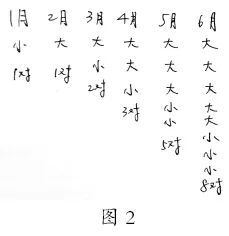 1月 2月 3月 4月 5月 6月
小 大 大 大 大 大
1对 1对 小 大 大 大
2对 小 大 大
3对 小 大
小 大
5对 小
小
小
8对
图 2